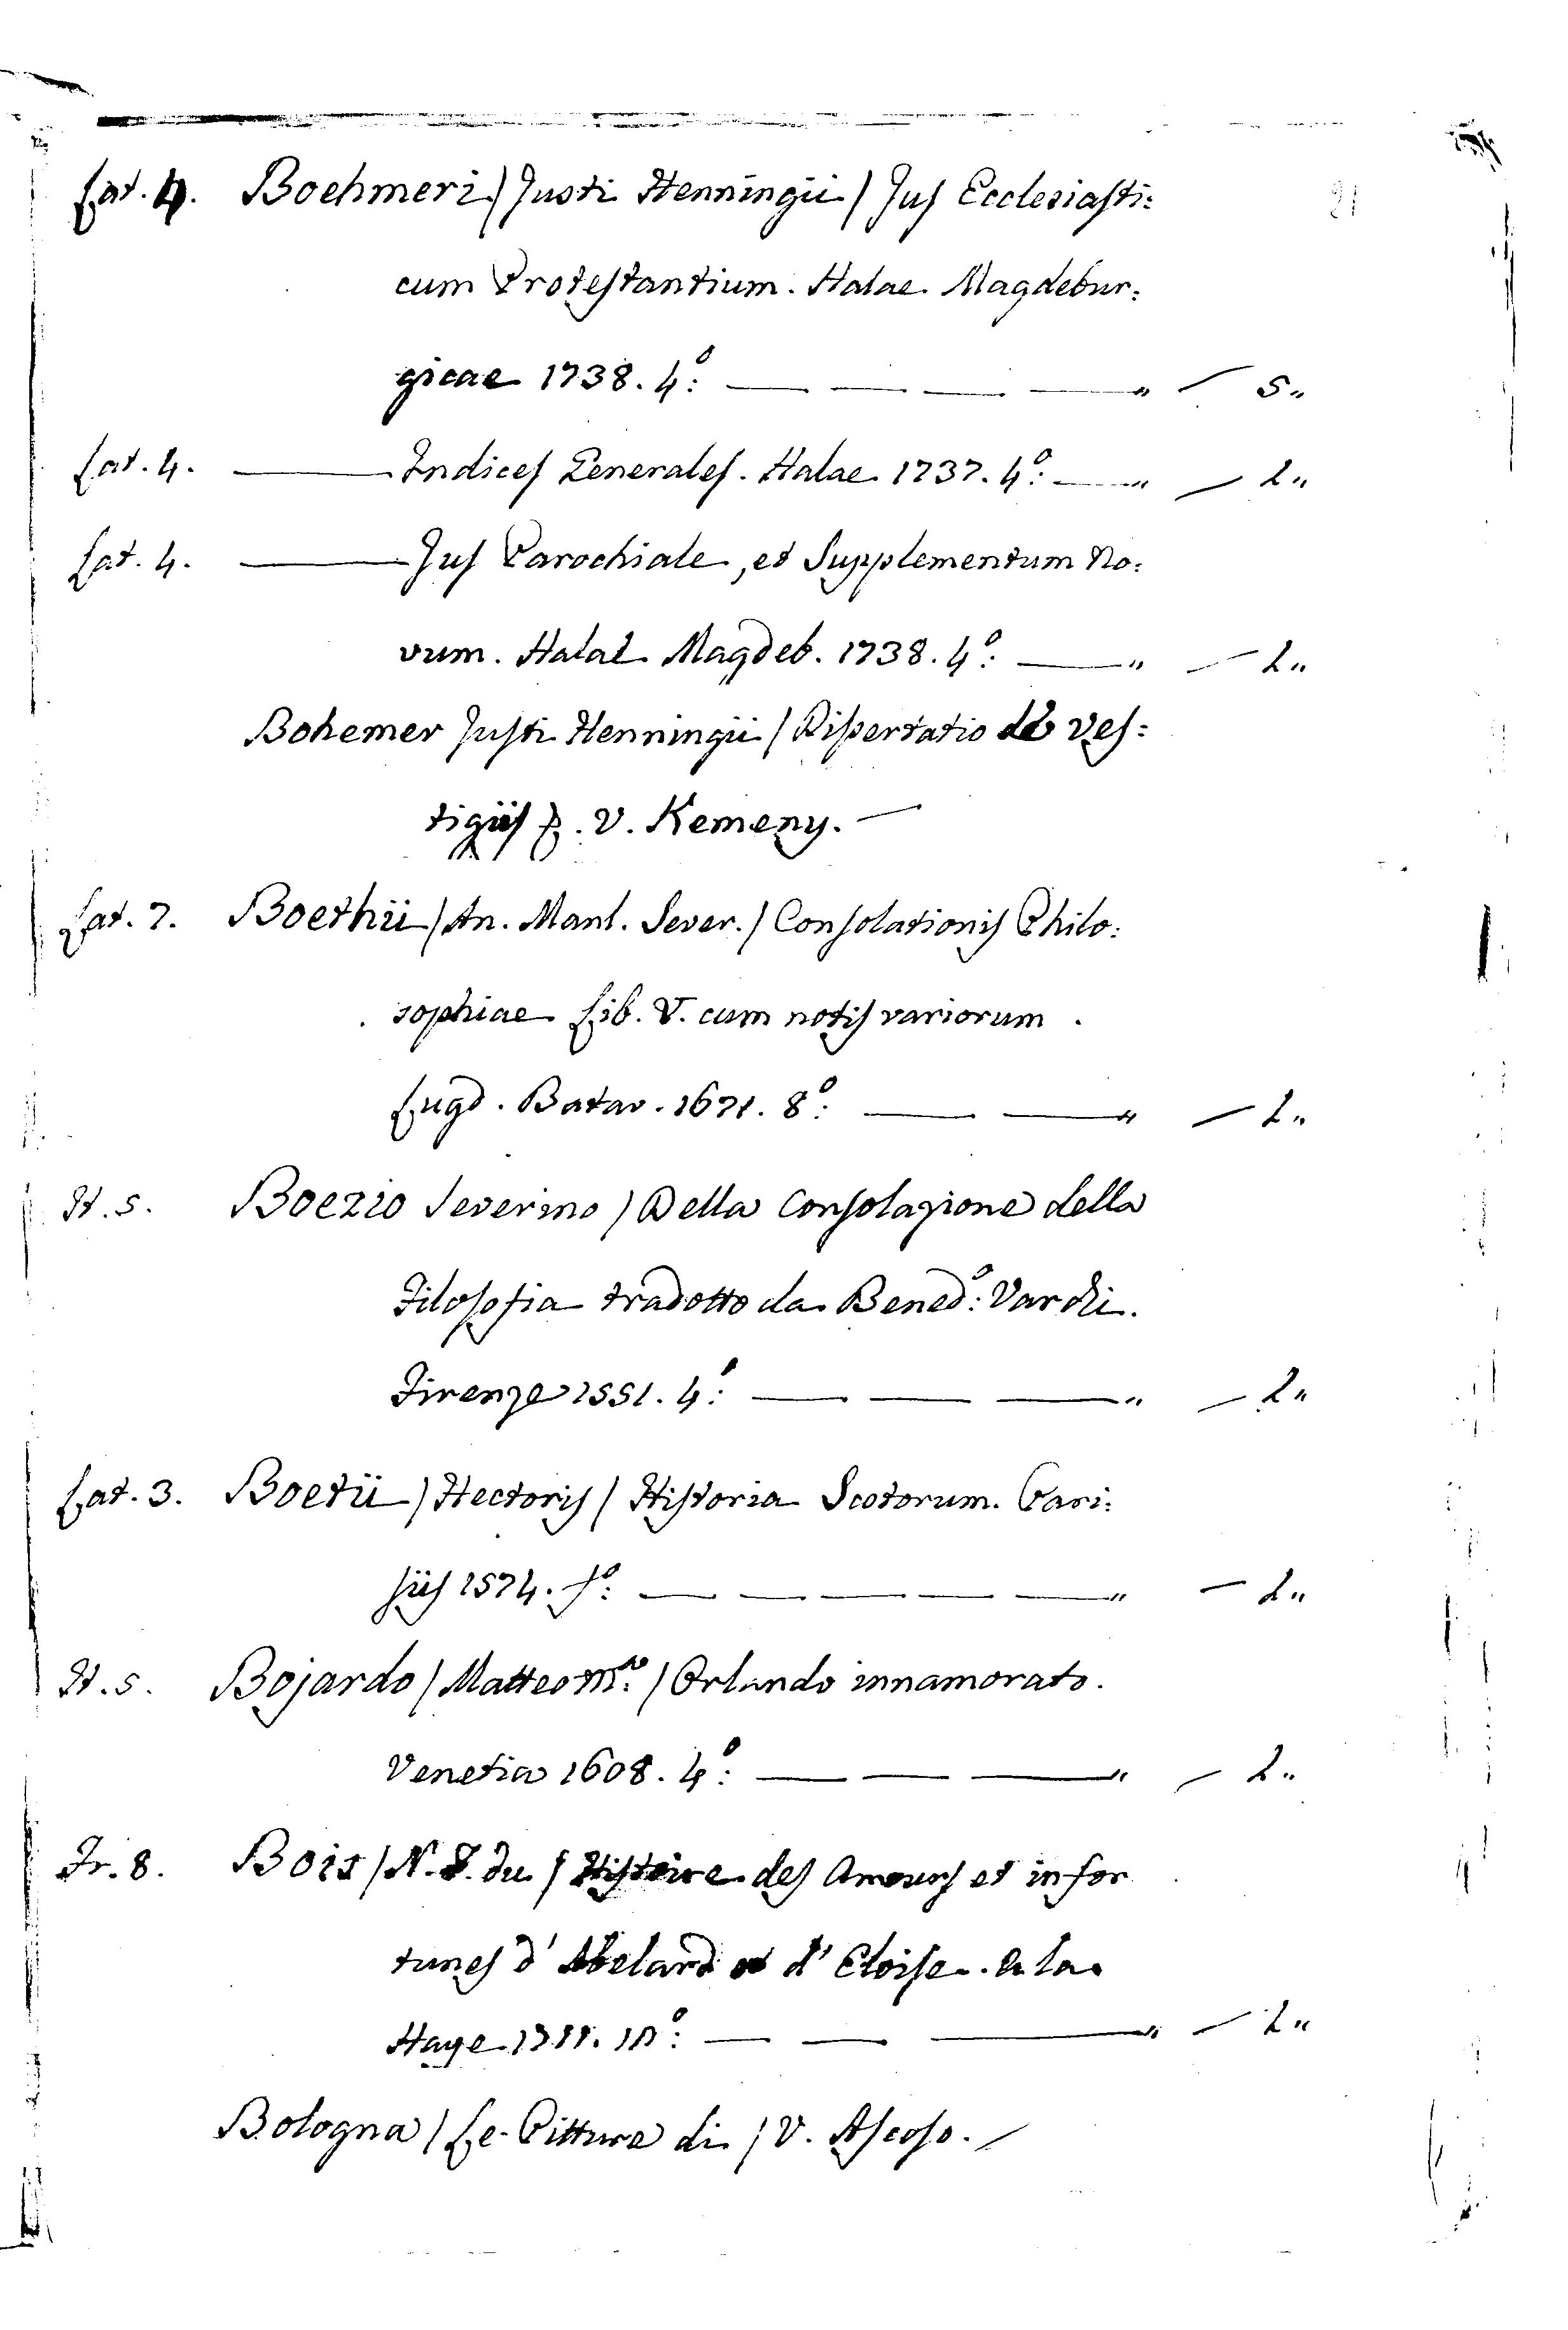 Lat. 4. Boehmeri / Justi Henningii / Jus Ecclesiasti:
21
cum Protestantium. Halae Magdebur:
gicae 1738. 4º: — — — — " — 5 "
Lat. 4. — Indices Generales. Halae 1737. 4º: — " — 1 "
Lat. 4. — Jus Parochiale, et Supplementum No:
vum. Halae Magdeb. 1738. 4º: — " — 1 "
Bohemer Justi Henningii / Dissertatio de Ves:
tigiis p. V. Kemeny. —
Lat. 7. Boethii / An. Manl. Sever. / Consolationis Philo:
sophiae Lib. V. cum notis variorum.
Lugd. Batav. 1671. 8º: — — " — 1 "
It. 5. Boezio Severino / Della Consolazione della
Filosofia tradotto da Bened:º Varchi.
Firenze 1551. 4º: — — — " — 1 "
Lat. 3. Boetii / Hectoris / Historia Scotorum. Pari:
siis 1574. fº: — — — — — " — 1 "
It. 5. Bojardo / Matteo M.ª / Orlando innamorato.
Venetia 1608. 4º: — — — " — 1 "
Fr. 8. Bois / N. F. du / Histoire des Amours et infor
tunes d'Abelard et d'Eloise. a la
Haye 1711. — — — " — 1 "
Bologna / Le Pitture di / V. Ascoso. —